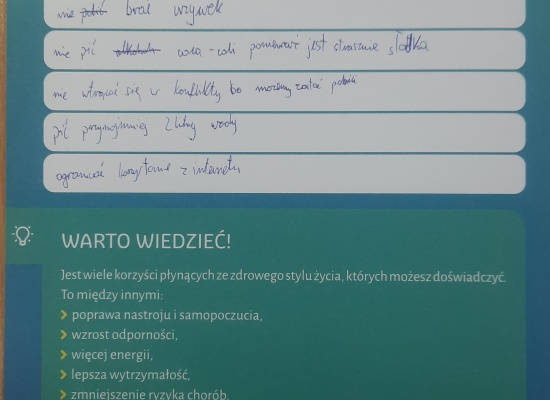 nie palić brać używek
nie pić alkoholu coca-coli ponieważ jest strasznie słodka
nie wtrącać się w konflikty bo możemy zostać pobita
pić przynajmniej 2 litry wody
ograniczać korzystanie z internetu
WARTO WIEDZIEĆ!
Jest wiele korzyści płynących ze zdrowego stylu życia, których możesz doświadczyć.
To między innymi:
poprawa nastroju i samopoczucia,
wzrost odporności,
więcej energii,
lepsza wytrzymałość,
zmniejszenie ryzyka chorób,